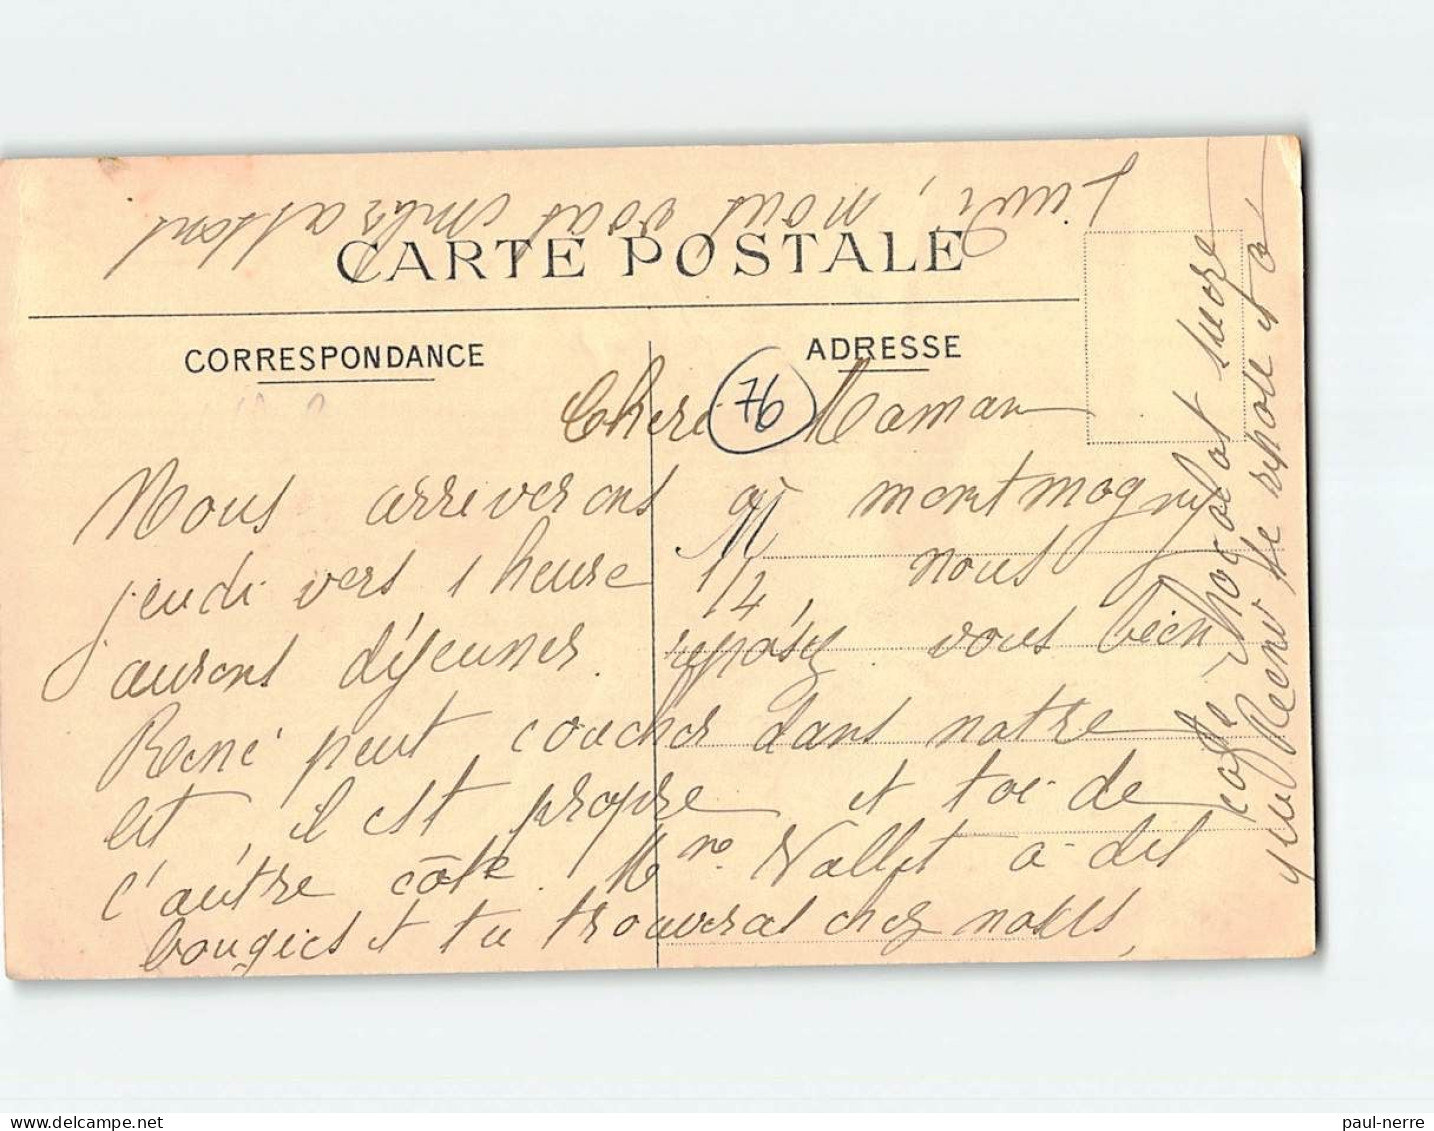 CARTE POSTALE
CORRESPONDANCE
ADRESSE
76
Chere Maman
Nous arriverons à montmagny
jeudi vers 1 heure 1/4, nous
aurons déjeuner. reposez vous bien,
René peut coucher dans notre
lit, il est propre et toi de
l'autre coté. Mme Vallet a des
bougies et tu trouveras chez nous,
café, chocolat sucre
que René se repose et toi
aussi, nous vous embrassons
paul-nerre